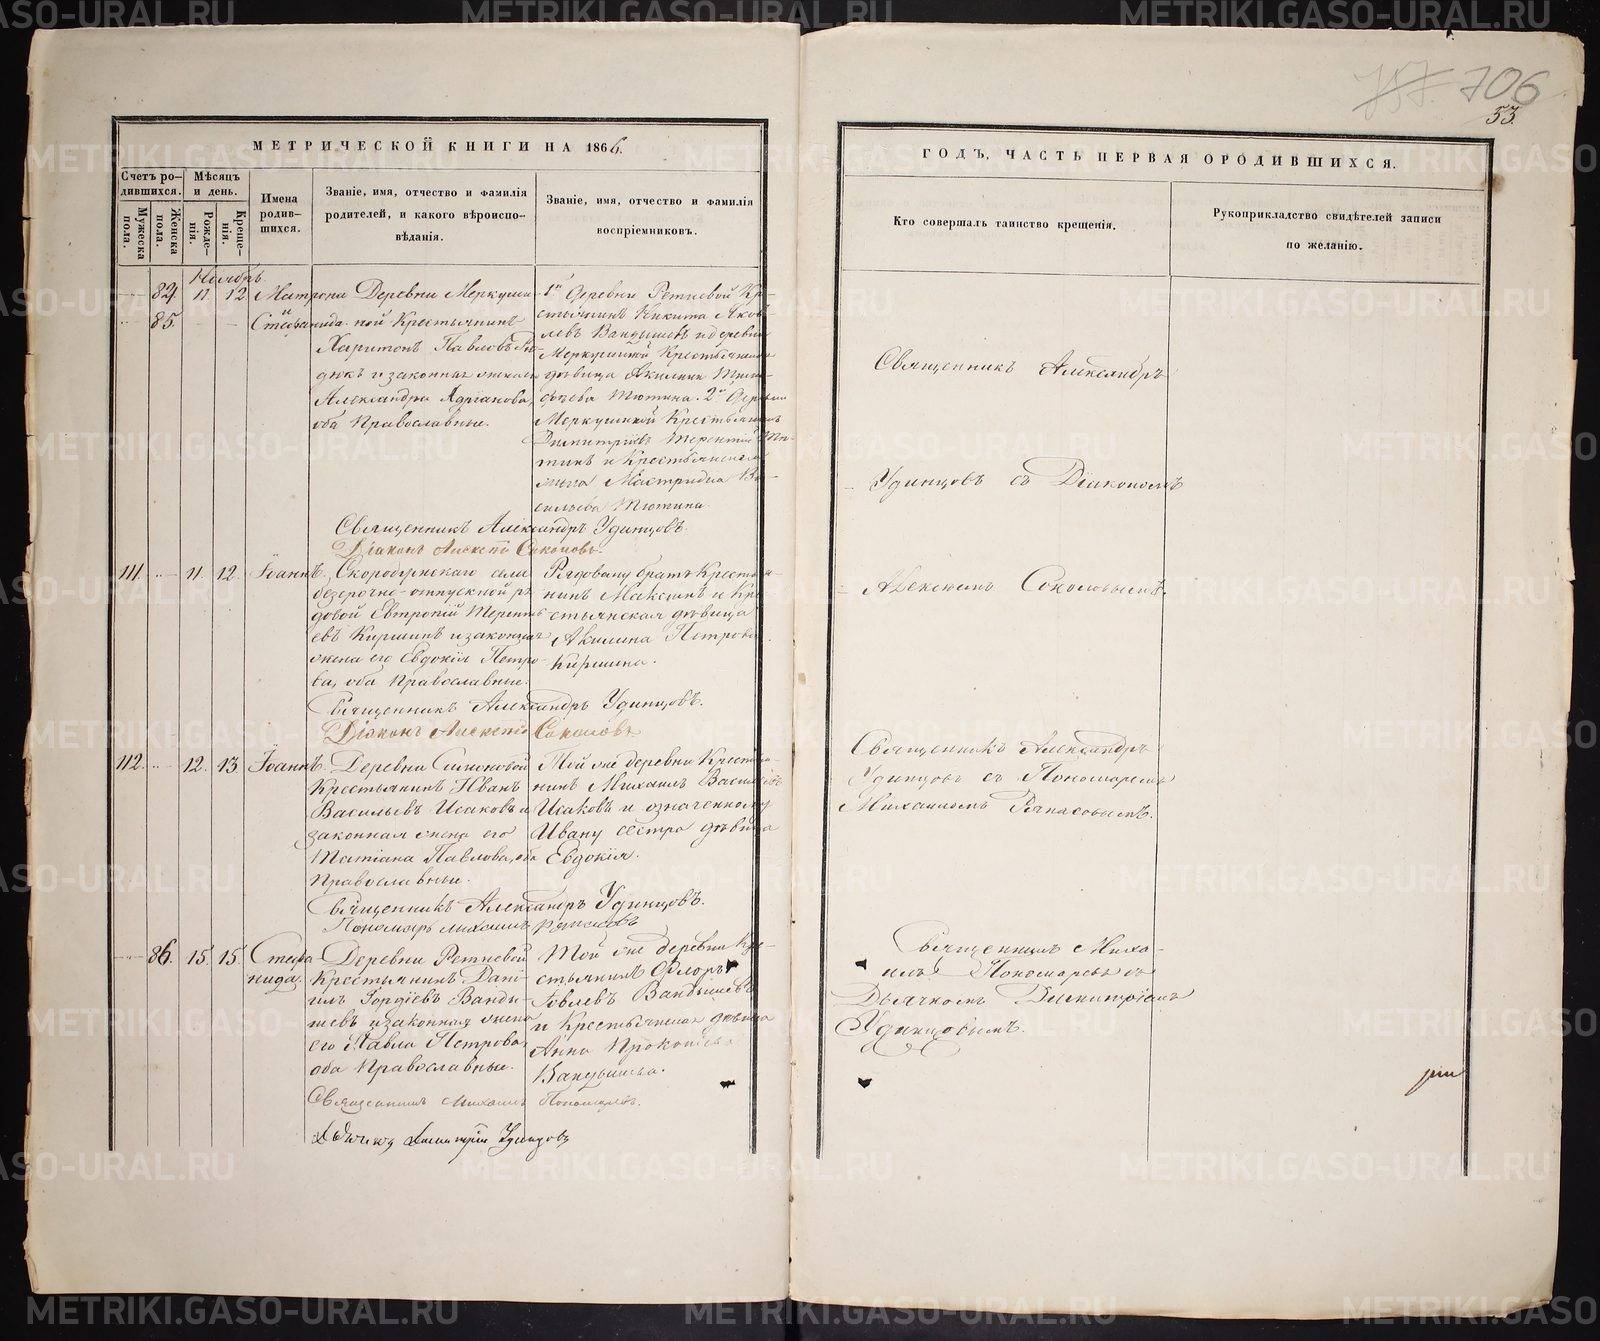 757. 706
53.
МЕТРИЧЕСКОЙ КНИГИ НА 1866.
Счетъ родившихся.
Мужеска пола.
Женска пола.
Мѣсяцъ и день.
Рожденія.
Крещенія.
Имена родившихся.
Званіе, имя, отчество и фамилія
родителей, и какого вѣроиспо-
вѣданія.
Званіе, имя, отчество и фамилія
воспріемниковъ.
Ноябрь
84. 11. 12. Матрона
85. Стефанида.
Деревни Меркушин-
ской Крестьянинъ
Харитонъ Павловъ
и законная жена
Александра
оба Православные.
1й Деревни Ретневой Кре-
стьянинъ Никита Яков-
левъ Вандышевъ и деревни
Меркушиной Крестьянская
дѣвица Акилина
Тютина. 2й Деревни
Меркушиной Крестьянинъ
Димитрій Терентіевъ Тю-
тинъ и Крестьянская
Ва-
сильева Тютина.
Священникъ Александръ Удинцовъ.
Діаконъ Алексѣй Соколовъ.
111. 11. 12. Іоаннъ.
села
безсрочно-отпускной ря-
довой Евтропій Терентьевъ
Киршинъ и законная
жена его Евдокія Петро-
ва, оба Православные.
Рядовому братъ Крестья-
нинъ Максимъ и Кре-
стьянская дѣвица
Акилина Петрова
Киршина.
Священникъ Александръ Удинцовъ.
Діаконъ Алексѣй Соколовъ
112. 12. 13. Іоаннъ.
Деревни
Крестьянинъ Иванъ
Васильевъ Исаковъ и
законная жена его
Татіана Павлова, оба
Православные.
Той же деревни Крестья-
нинъ Михаилъ Васильевъ
Исаковъ и означенному
Ивану сестра дѣвица
Евдокія.
Священникъ Александръ Удинцовъ.
Пономарь Михаилъ
86. 15. 15. Стефа-
нида.
Деревни Ретневой
Крестьянинъ Дані-
илъ Гордіевъ Ванды-
шевъ и законная жена
его Павла Петрова,
оба Православные.
Той же деревни Кре-
стьянинъ Флоръ
Іовлевъ Вандышевъ
и Крестьянская дѣвица
Анна Прокопьева
Вандышева.
Священникъ Михаилъ Пономаревъ.
Дьячекъ Димитрій Удинцовъ
ГОДЪ, ЧАСТЬ ПЕРВАЯ О РОДИВШИХСЯ.
Кто совершалъ таинство крещенія.
Рукоприкладство свидѣтелей записи
по желанію.
Священникъ Александръ
Удинцовъ съ Діакономъ
Алексѣемъ Соколовымъ.
Священникъ Александръ
Удинцовъ съ Пономаремъ
Михаиломъ
Священникъ Миха-
илъ Пономаревъ съ
Дьячкомъ Димитріемъ
Удинцовымъ.